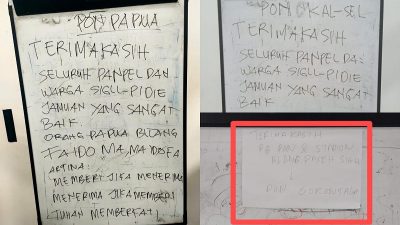 PON PAPUA
TERIMAKASIH
SELURUH PANPEL DAN
WARGA SIGLI-PIDIE
JAMUAN YANG SANGAT
BAIK.
ORANG PAPUA BILANG
ARTINA:
MEMBERI JIKA MENERIMA
MENERIMA JIKA MEMBERI
TUHAN MEMBERKATI
PON KAL-SEL
TERIMAKASIH
SELURUH PANPEL DAN
WARGA SIGLI-PIDIE
JAMUAN YANG SANGAT
BAIK
TERIMAKASIH
STADION
BLANG PASEH SIGLI
PON GORONTALO